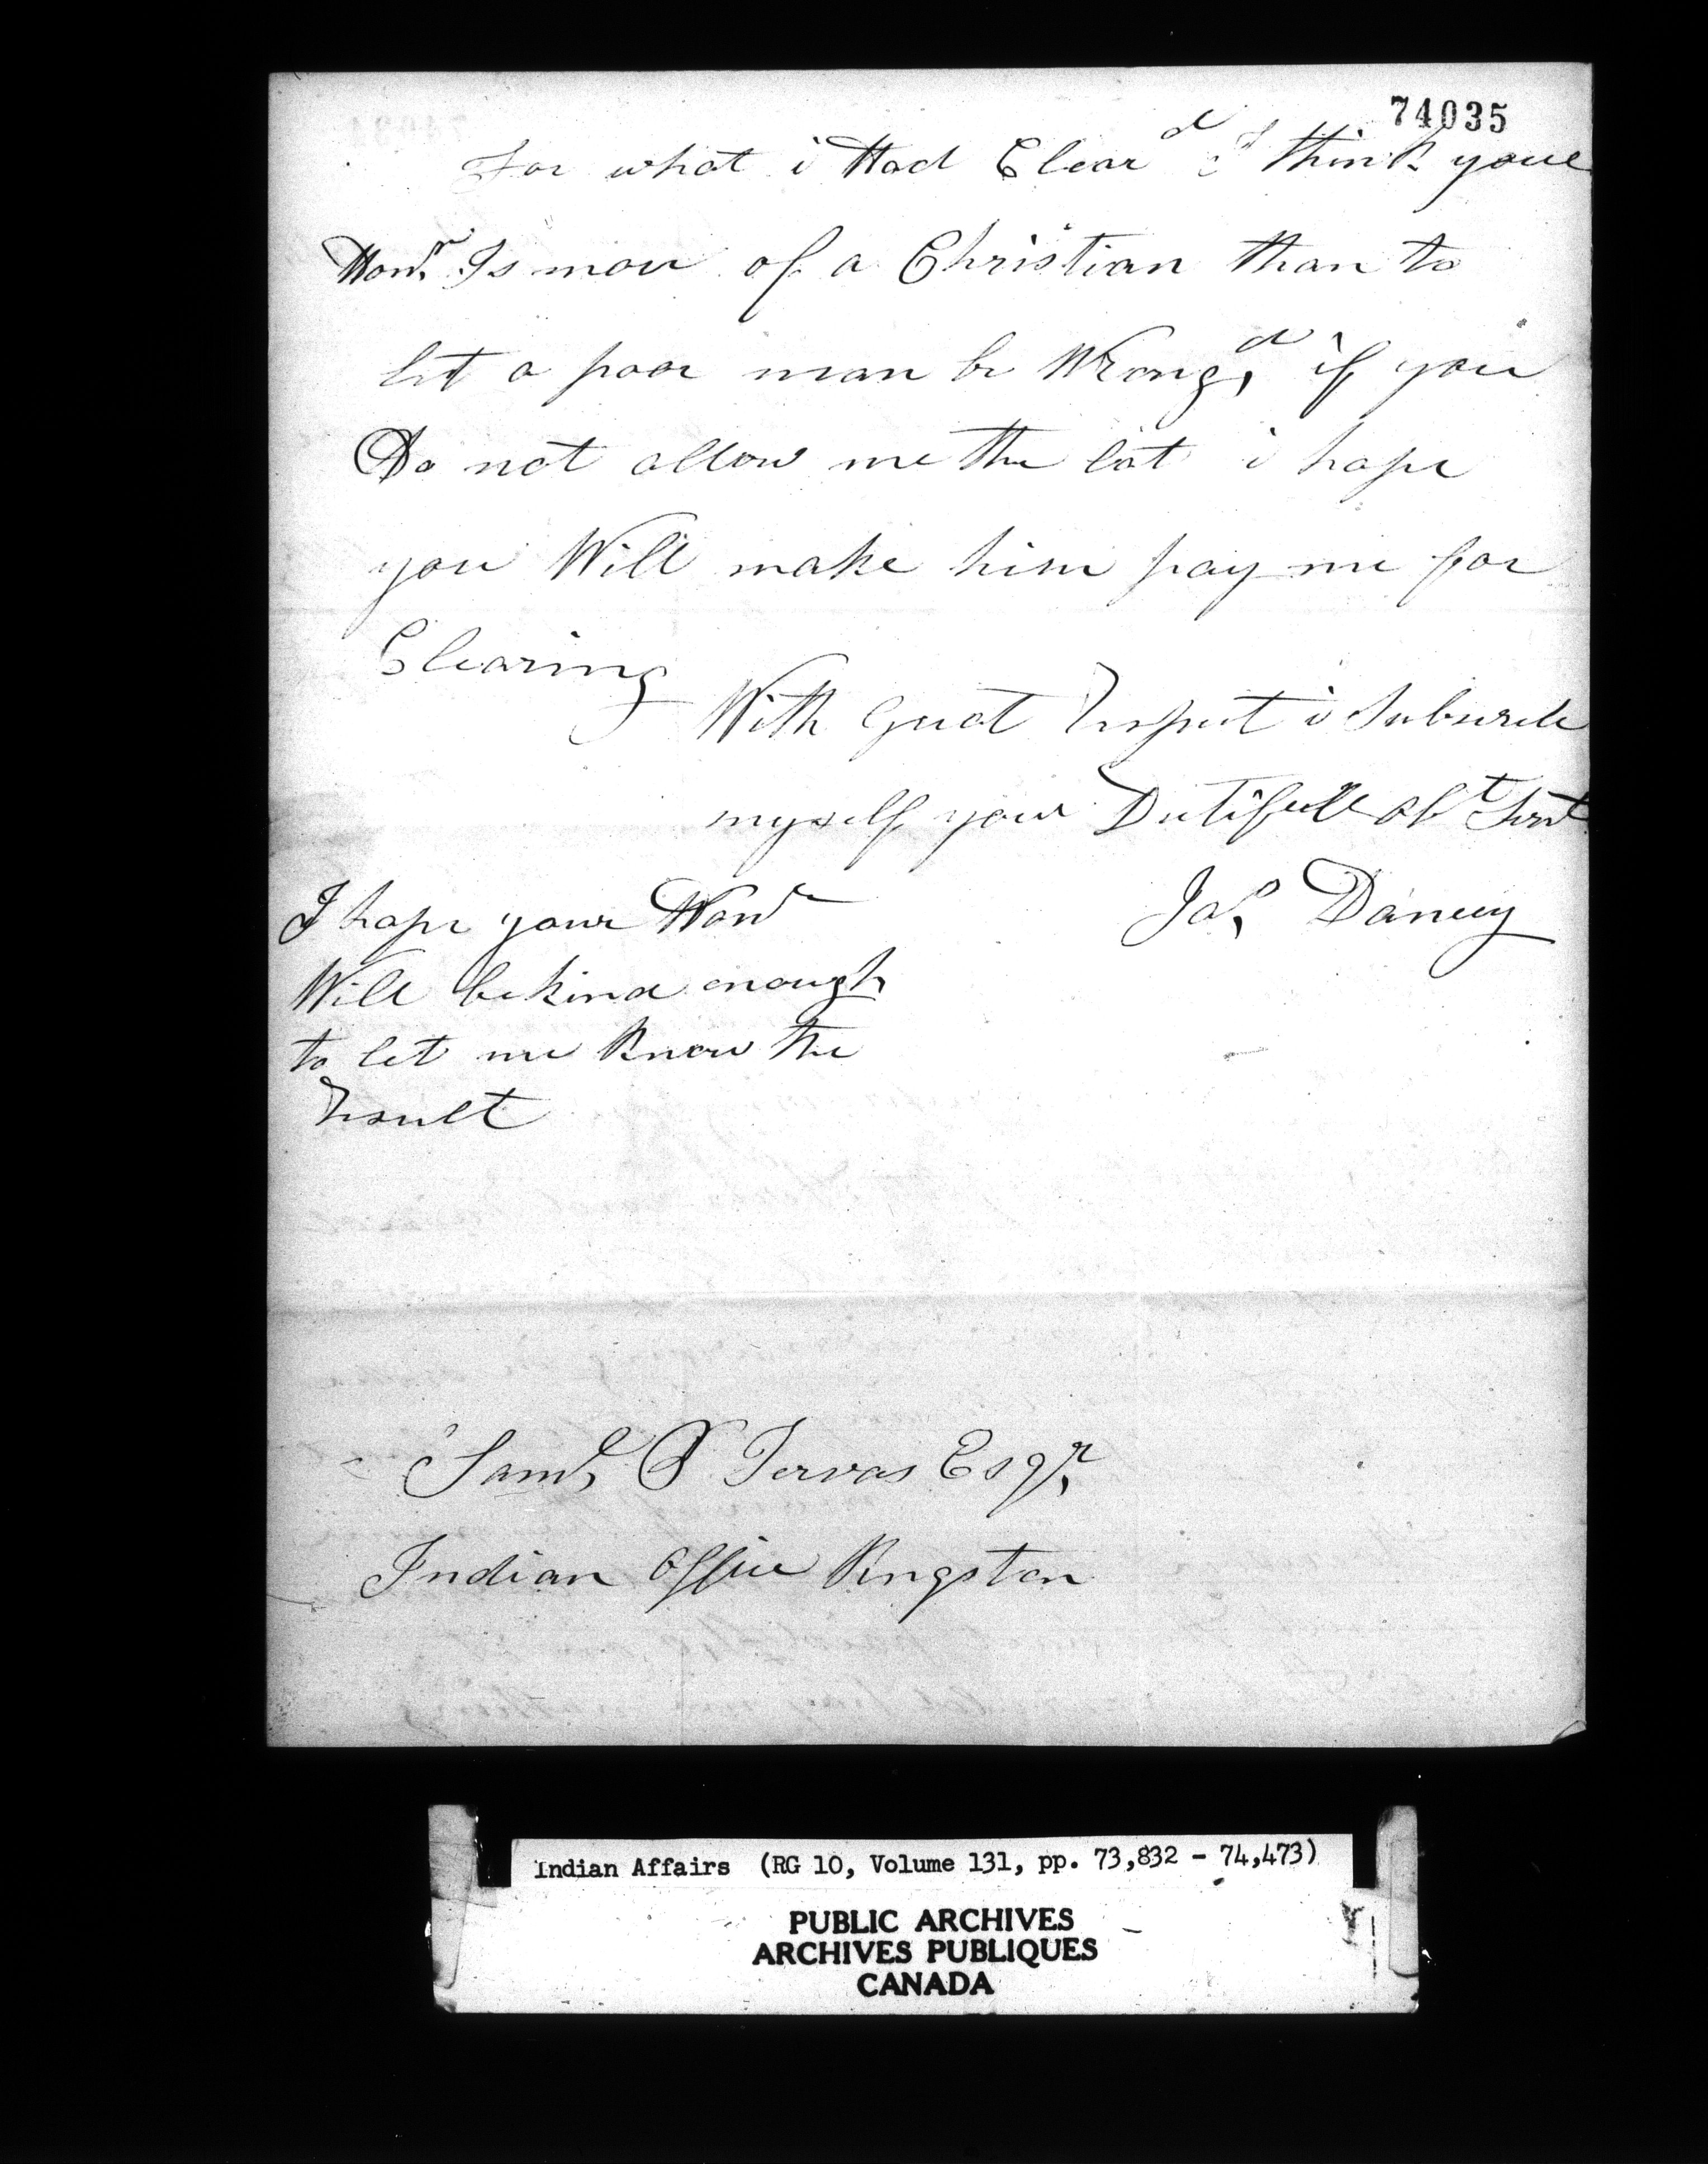 74035
For what i Had Clear^d I think your
Hon^r Is more of a Christian than to
let a poor man be Wrong^d if you
Do not allow me the lot i hope
you Will make him pay me for
Clearing
With great respect i Subscribe
myself your Dutifull Ob^t Servt
Ja^s Dancey
I hope your Hon^r
Will be kind enough
to let me know the
result
Sam^l P Jervas Esq^r
Indian Office Kingston
Indian Affairs (RG 10, Volume 131, pp. 73,832 - 74,473)
PUBLIC ARCHIVES
ARCHIVES PUBLIQUES
CANADA